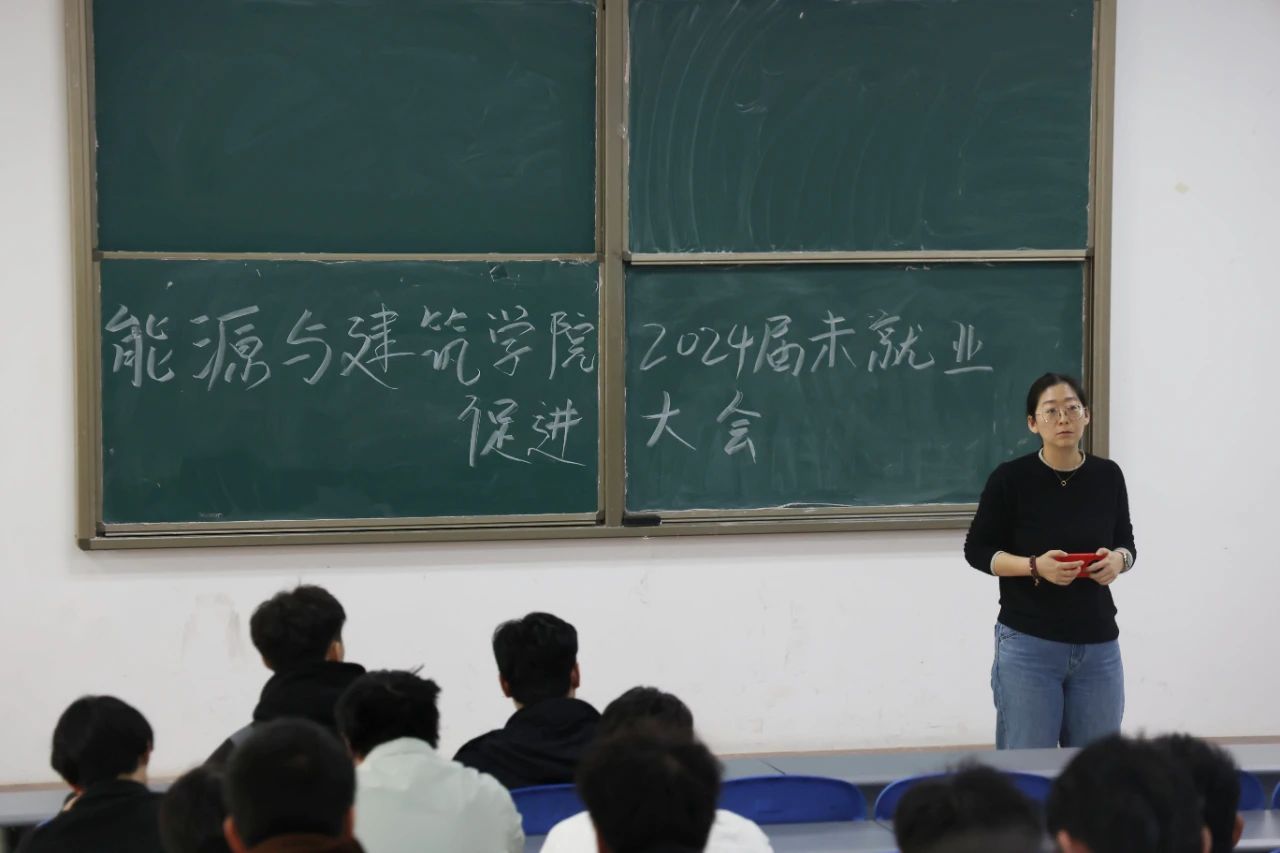 能源与建筑学院 2024届未就业
促进 大会